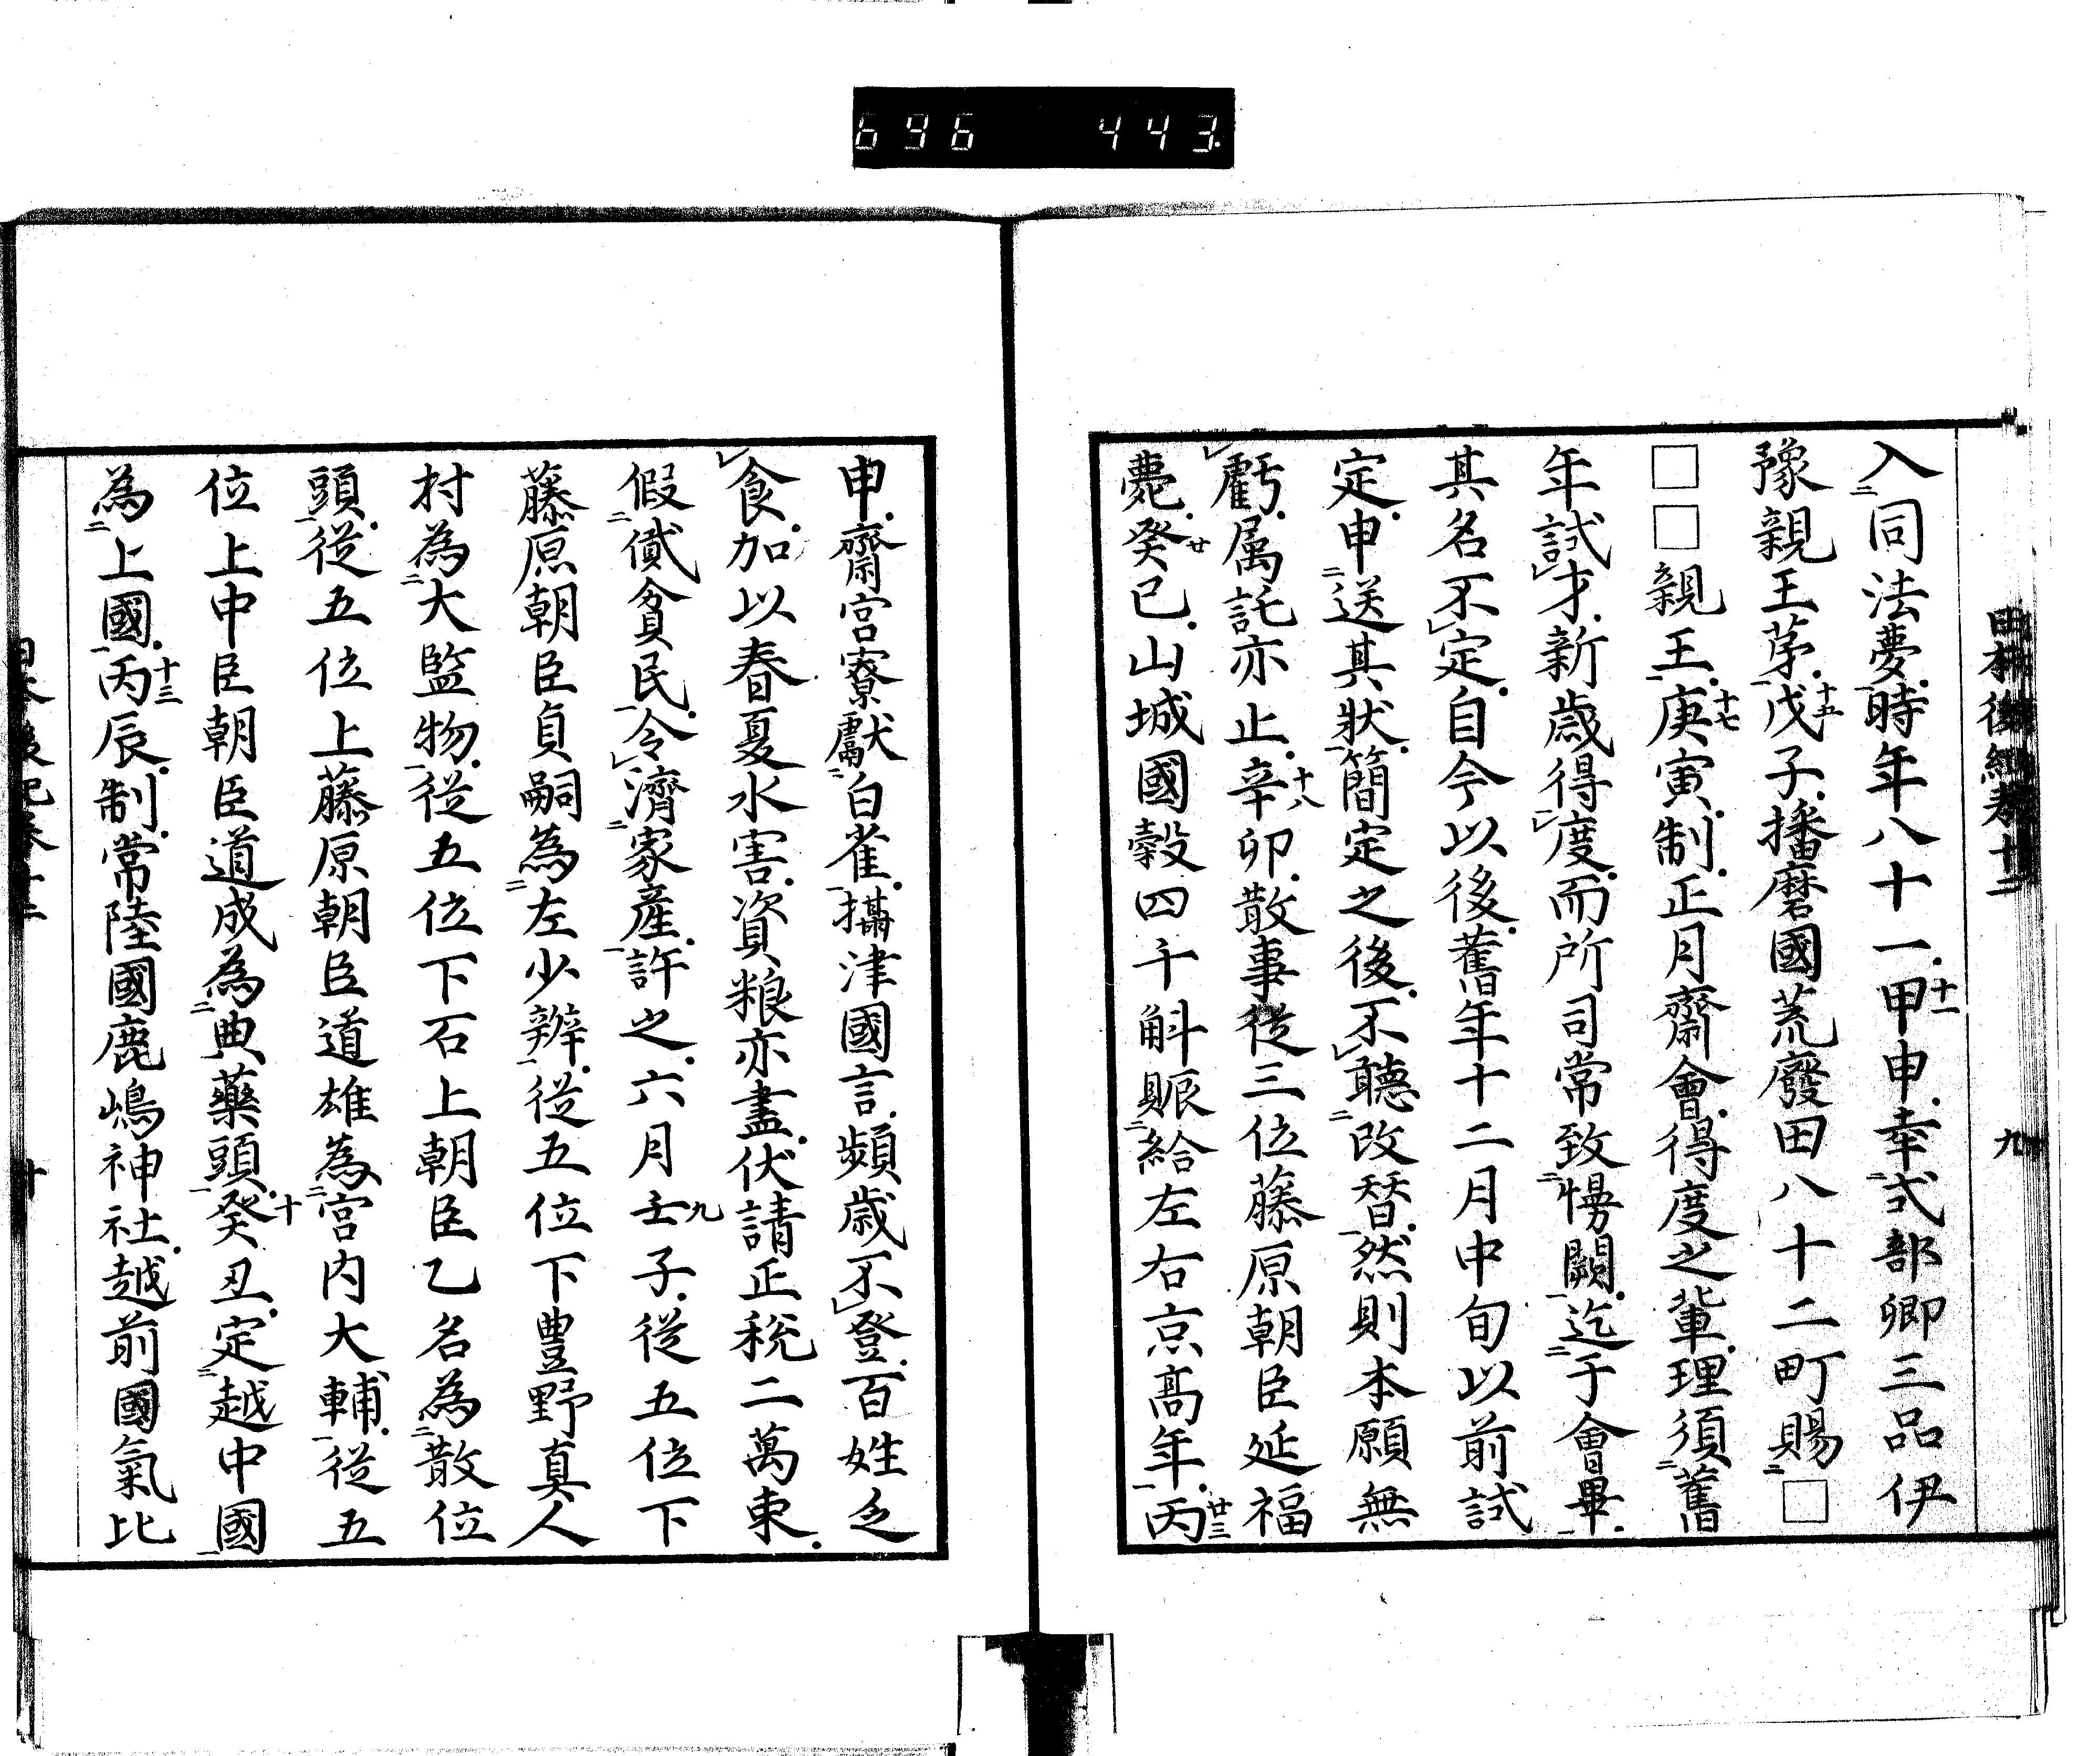 696 443
日本後紀卷十二 九
入二同法夢一時年八十一甲十一申幸二式部卿三品伊
豫親王茅一戊十五子播磨國荒廢田八十二町賜二□
□□親王一庚十七寅制正月齋會得度之輩理須二舊
年試才新歳得度而所司常致二慢闕一迄二于會畢一
其名不定自今以後舊年十二月中旬以前試
定申二送其狀一簡定之後不聽二改替一然則本願無
虧属託亦止辛十八卯散事從三位藤原朝臣延福
薨癸廿巳山城國穀四千斛賑二給左右京高年一丙廿三
申齋宮寮獻二白雀一攝津國言頻歳不登百姓乏
食加以春夏水害資粮亦盡伏請正税二萬束
假二貸貧民一令濟二家産一許之六月壬九子從五位下
藤原朝臣貞嗣為二左少辨一從五位下豊野真人
村為二大監物一從五位下石上朝臣乙名為二散位
頭一從五位上藤原朝臣道雄為二宮内大輔一從五
位上中臣朝臣道成為二典藥頭一癸十丑定二越中國一
為二上國一丙十三辰制常陸國鹿嶋神社越前國氣比
日本後紀卷十二 十